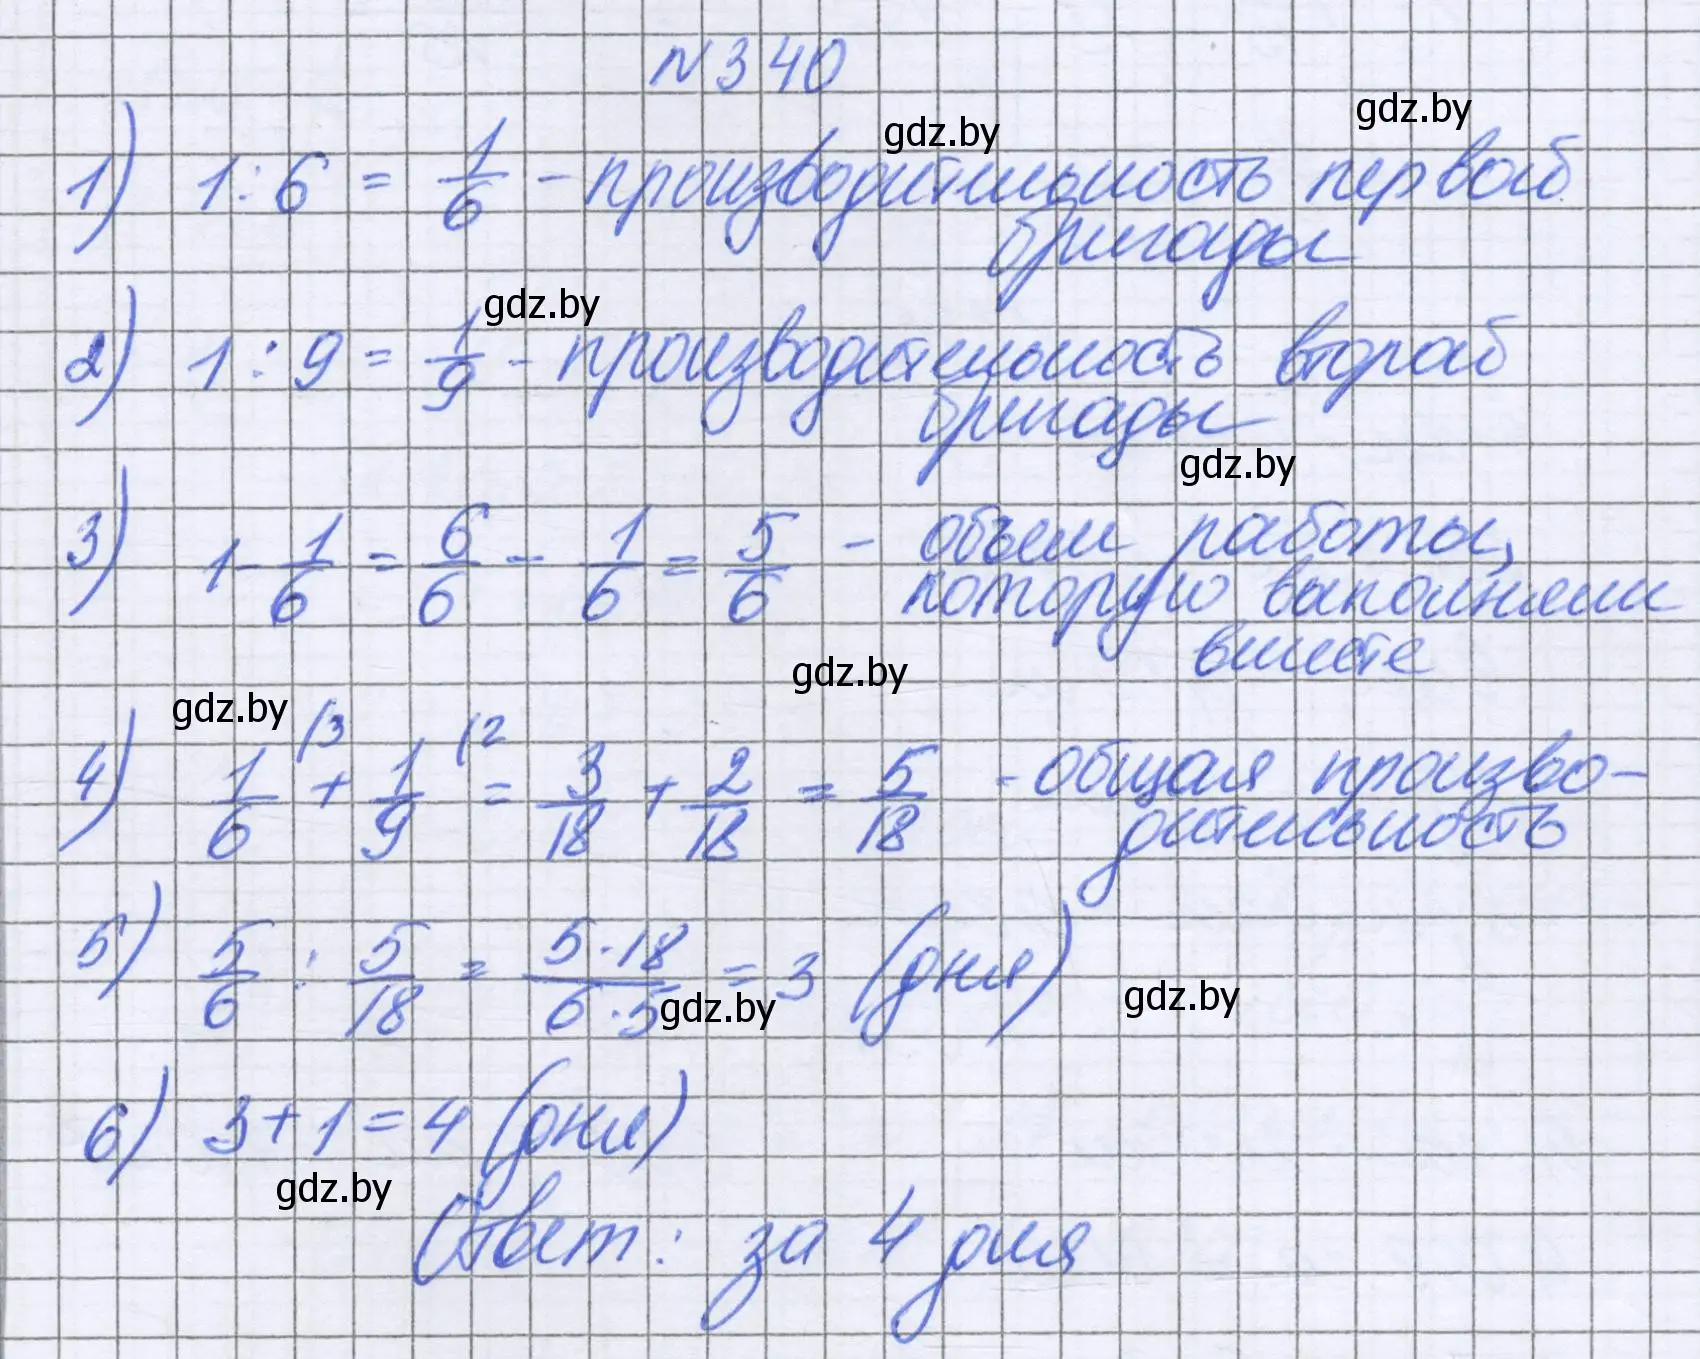 №340
gdz.by
gdz.by
1) 1 : 6 = 1/6 - производительность первой
бригады
gdz.by
2) 1 : 9 = 1/9 - производительность второй
бригады
gdz.by
3) 1 - 1/6 = 6/6 - 1/6 = 5/6 - объем работы,
которую выполнили
вместе
gdz.by
gdz.by
4) 1/6 \3 + 1/9 \2 = 3/18 + 2/18 = 5/18 - общая произво-
дительность
5) 5/6 : 5/18 = 5·18/6·5 = 3 (дня)
gdz.by
gdz.by
6) 3 + 1 = 4 (дня)
gdz.by
Ответ: за 4 дня